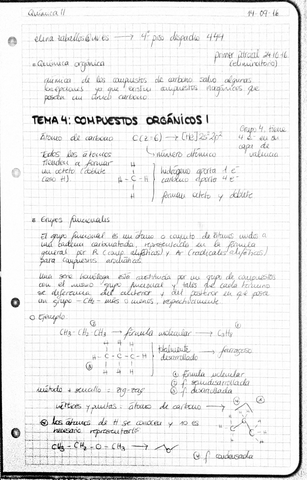 Química II 14-09-16
→ 4º piso despacho 444
primer parcial 24-10-16
(eliminatorio)
Química orgánica
química de los compuestos de carbono salvo algunas
excepciones ya que existen compuestos inorgánicos que
poseen un único carbono.
TEMA 4: COMPUESTOS ORGÁNICOS I
Átomo de carbono C (z=6) → [He] 2s² 2p²
Grupo 4, tiene
4 e⁻ en su
capa de
valencia
número atómico
Todos los átomos
tienden a formar
un octeto (
caso H)
H
H - C - H
H
hidrógeno aporta 1 e⁻
carbono aporta 4 e⁻
forman octeto y
Grupos funcionales
El grupo funcional es un átomo o conjunto de átomos unido a
una cadena carbonatada, representada en la fórmula
general por R (comp. alifáticos) y Ar (radicales
para compuestos aromáticos
Una serie homóloga está constituida por un grupo de compuestos
con el mismo grupo funcional y tales que cada término
se diferencia del anterior y del posterior en que posee
un grupo -CH₂- más o menos, respectivamente
Ejemplo
CH₃-CH₂-CH₃ → fórmula molecular → C₃H₈
H H H
H-C-C-C-H
H H H
totalmente
desarrollado
→ farragoso
fórmula molecular
f. semidesarrollada
f. desarrollada
método + sencillo: zig-zag
vértices y puntas: átomos de carbono →
Los átomos de H se omiten y no es
necesario representarlos
CH₃-CH₂-O-CH₃ →
f. condensada